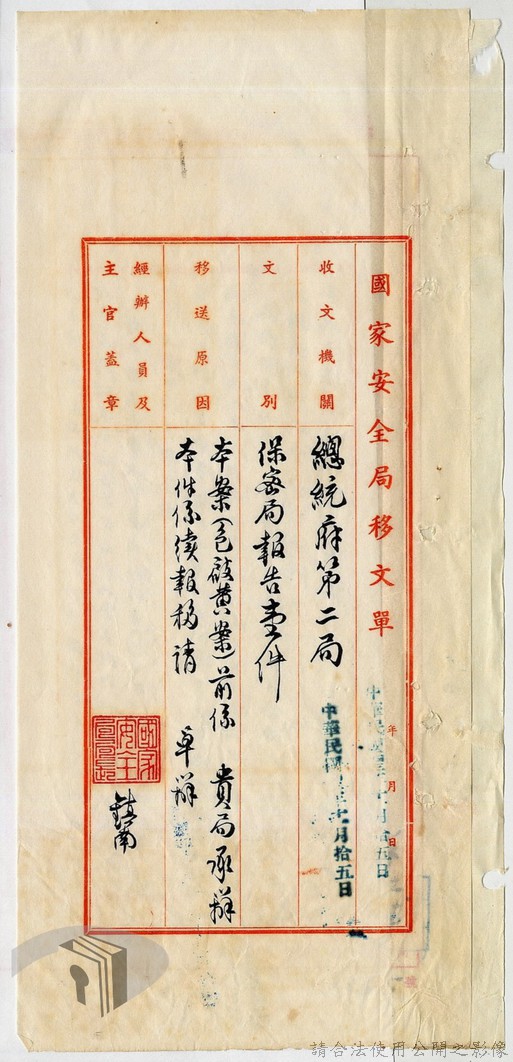 國家安全局移文單
年 月 日
號
中華民國 月拾五日
收文機關
總統府第二局
中華民國 七月拾五日
文別
保密局報告壹件
移送原因
本案(包啟黃案)前係 貴局承辦
本件係續報移請 卓辦
經辦人員及
主官蓋章
國家安全局局長
鎮南
請合法使用公開之影像